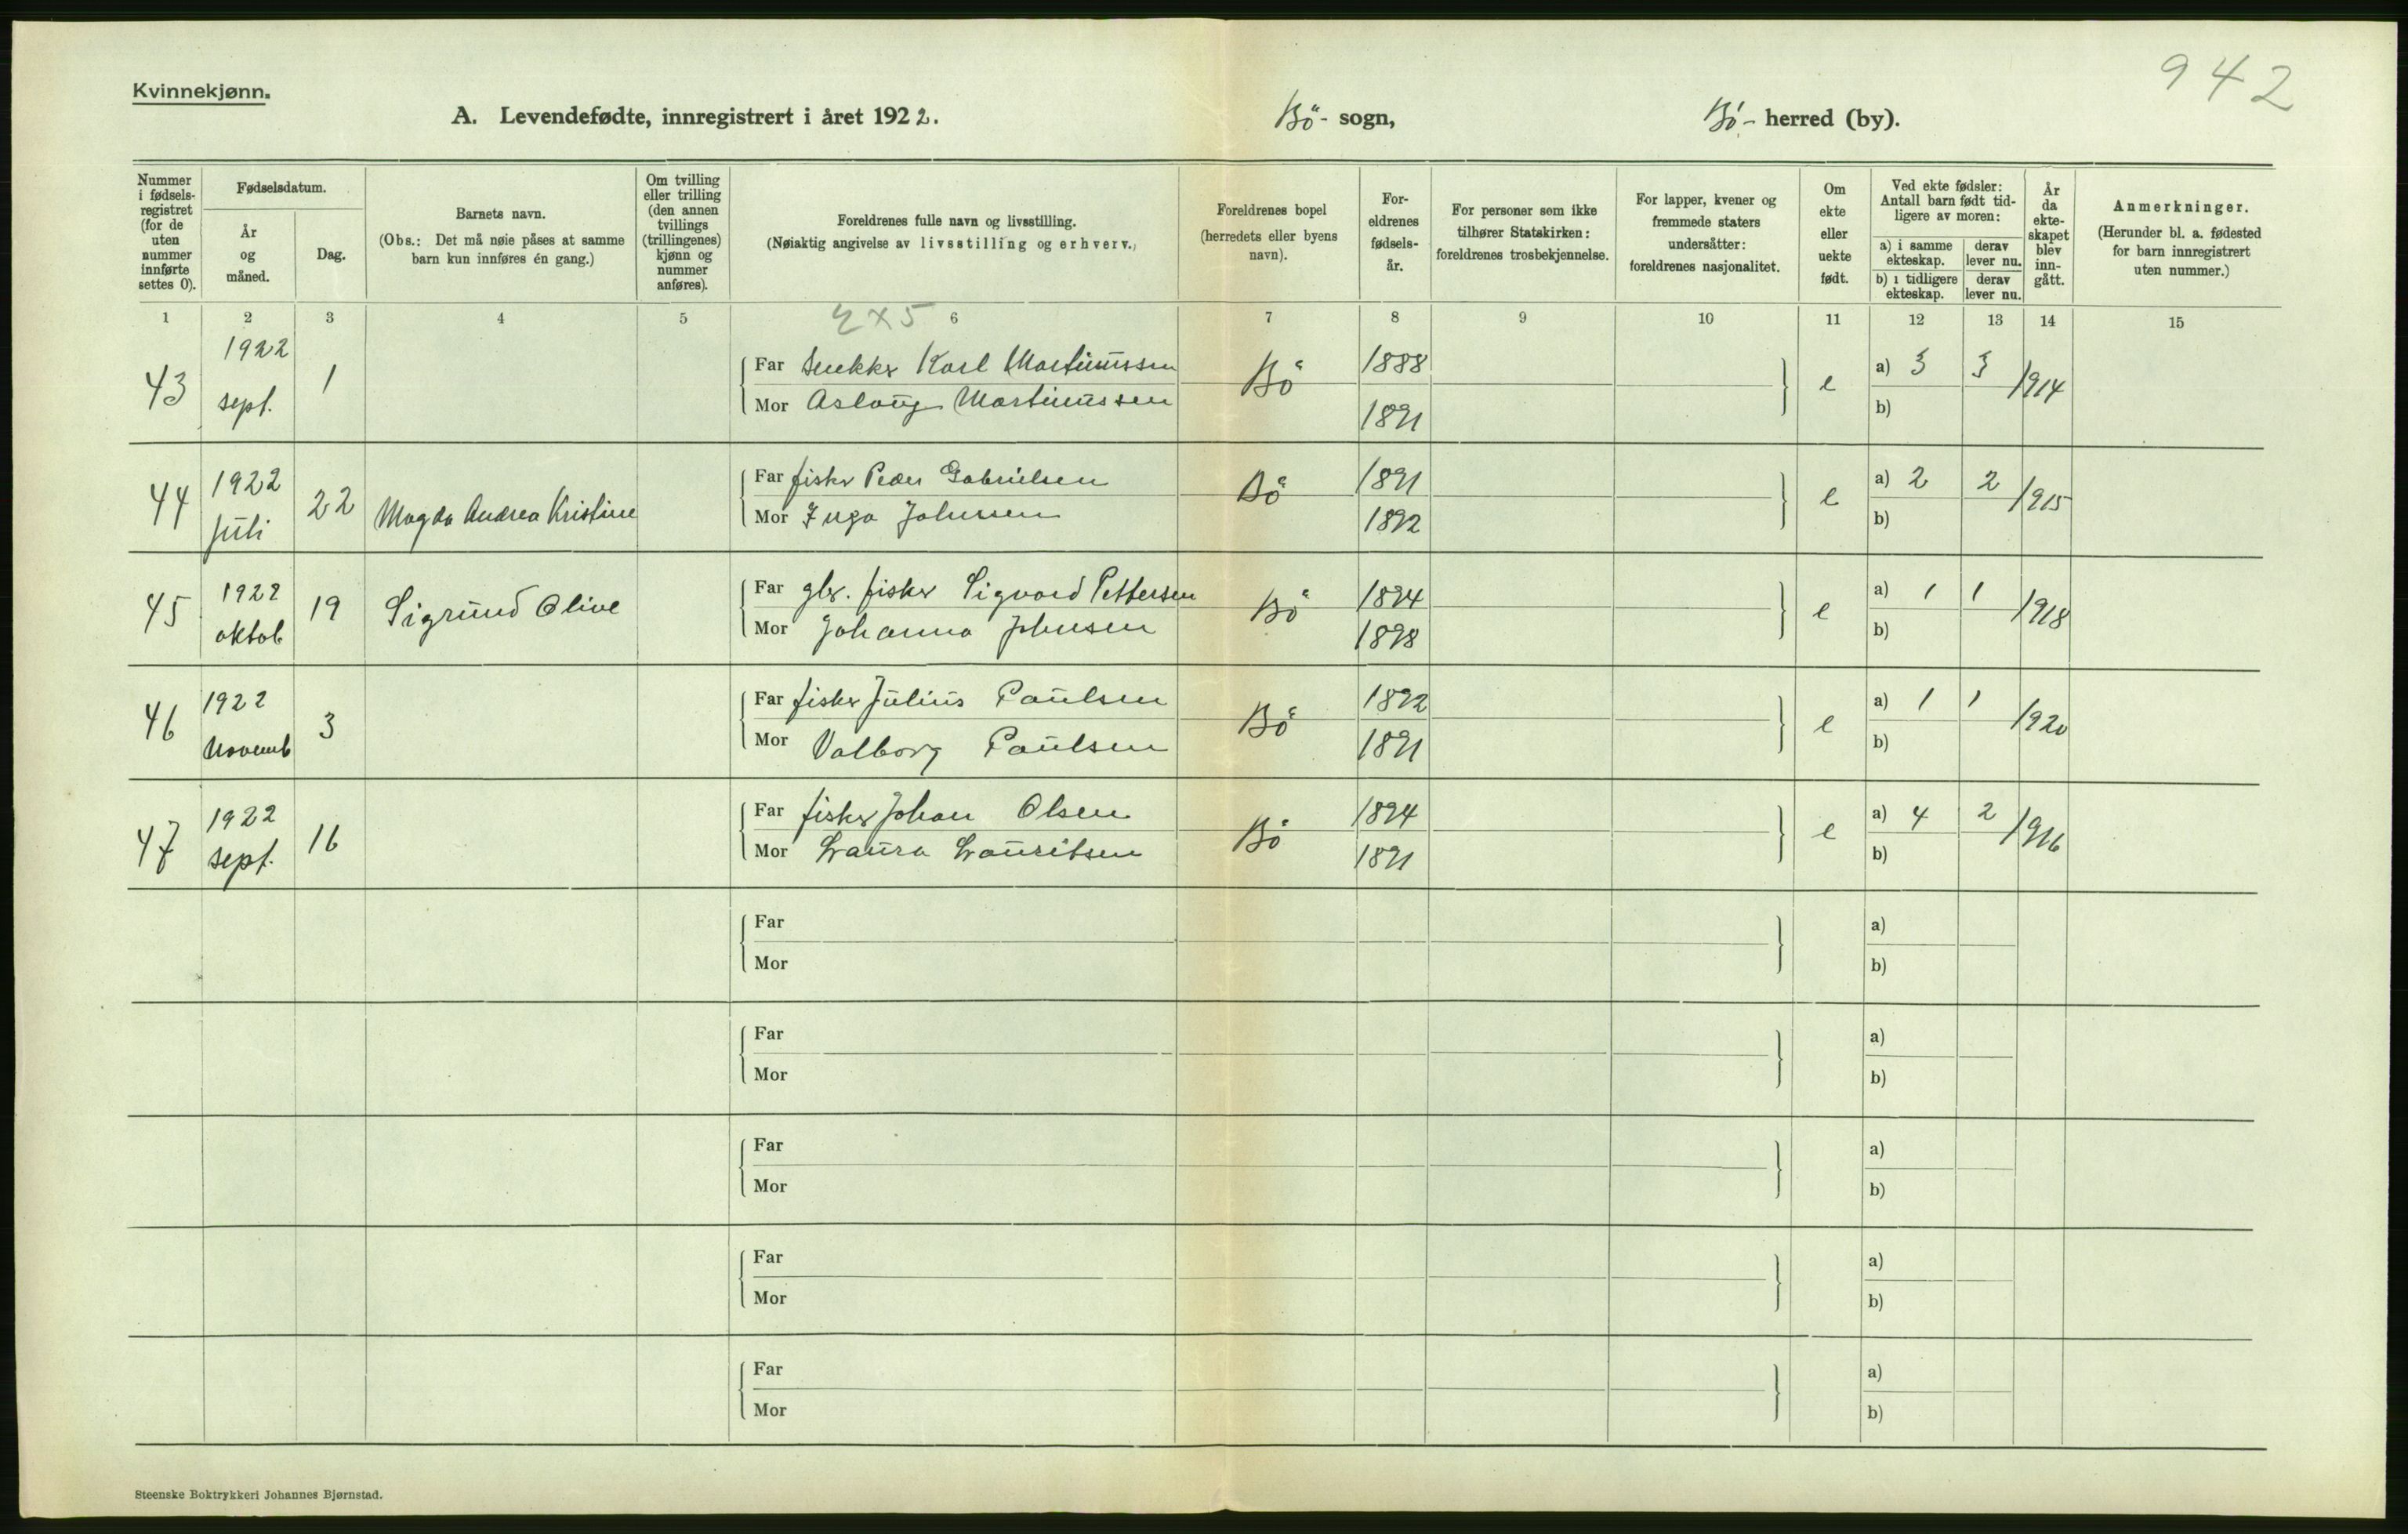 942
Kvinnekjønn.
A. Levendefødte, innregistrert i året 1922. Bö- sogn, Bö- herred (by).
Nummer i fødselsregistret (for de uten nummer innførte settes 0).
Fødselsdatum.
År og måned.
Dag.
Barnets navn.
(Obs.: Det må nøie påses at samme barn kun innføres én gang.)
Om tvilling eller trilling (den annen tvillings (trillingenes) kjønn og nummer anføres).
Foreldrenes fulle navn og livsstilling.
(Nøiaktig angivelse av livsstilling og erhverv.)
Foreldrenes bopel (herredets eller byens navn).
Foreldrenes fødselsår.
For personer som ikke tilhører Statskirken: foreldrenes trosbekjennelse.
For lapper, kvener og fremmede staters undersåtter: foreldrenes nasjonalitet.
Om ekte eller uekte født.
Ved ekte fødsler: Antall barn født tidligere av moren:
a) i samme ekteskap. derav lever nu.
b) i tidligere ekteskap. derav lever nu.
År da ekteskapet blev inngått.
Anmerkninger.
(Herunder bl. a. fødested for barn innregistrert uten nummer.)
1 2 3 4 5 6 7 8 9 10 11 12 13 14 15
43 1922 sept. 1 Far Snekker Karl Martinussen Bö 1888 e a) 3 3 1914
Mor Aslaug Martinussen 1891 b)
44 1922 Juli 22 Magda Andrea Kristine Far fisker Peder Gabrielsen Bö 1891 e a) 2 2 1915
Mor Inga Johnsen 1892 b)
45 1922 oktob 19 Sigrund Olive Far gbr. fisker Sigvard Pettersen Bö 1894 e a) 1 1 1918
Mor Johanna Johnsen 1898 b)
46 1922 Novemb 3 Far fisker Julius Paulsen Bö 1892 e a) 1 1 1920
Mor Valborg Paulsen 1891 b)
47 1922 sept. 16 Far fisker Johan Olsen Bö 1894 e a) 4 2 1916
Mor Laura Lauritsen 1891 b)
Far a)
Mor b)
Far a)
Mor b)
Far a)
Mor b)
Far a)
Mor b)
Far a)
Mor b)
Steenske Boktrykkeri Johannes Bjørnstad.